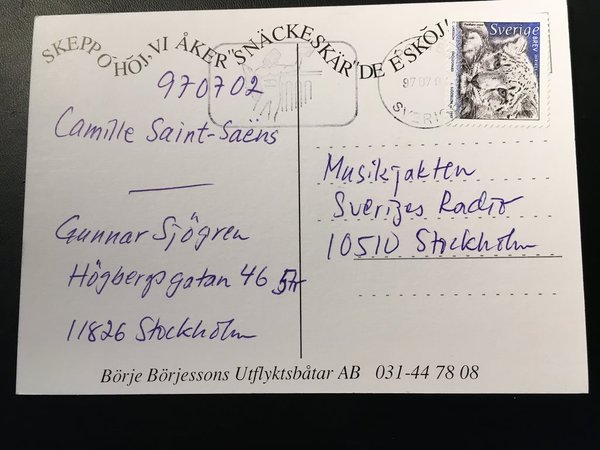 SKEPP O'HÖJ. VI ÅKER "SNÄCKESKÄR" DE E'SKÖJ!
970702
Camille Saint-Saëns
Gunnar Sjögren
Högbergsgatan 46 5tr
11826 Stockholm
Sverige BREV
97 07 0
SVERIG
Musikjakten
Sveriges Radio
10510 Stockholm
Börje Börjessons Utflyktsbåtar AB 031-44 78 08